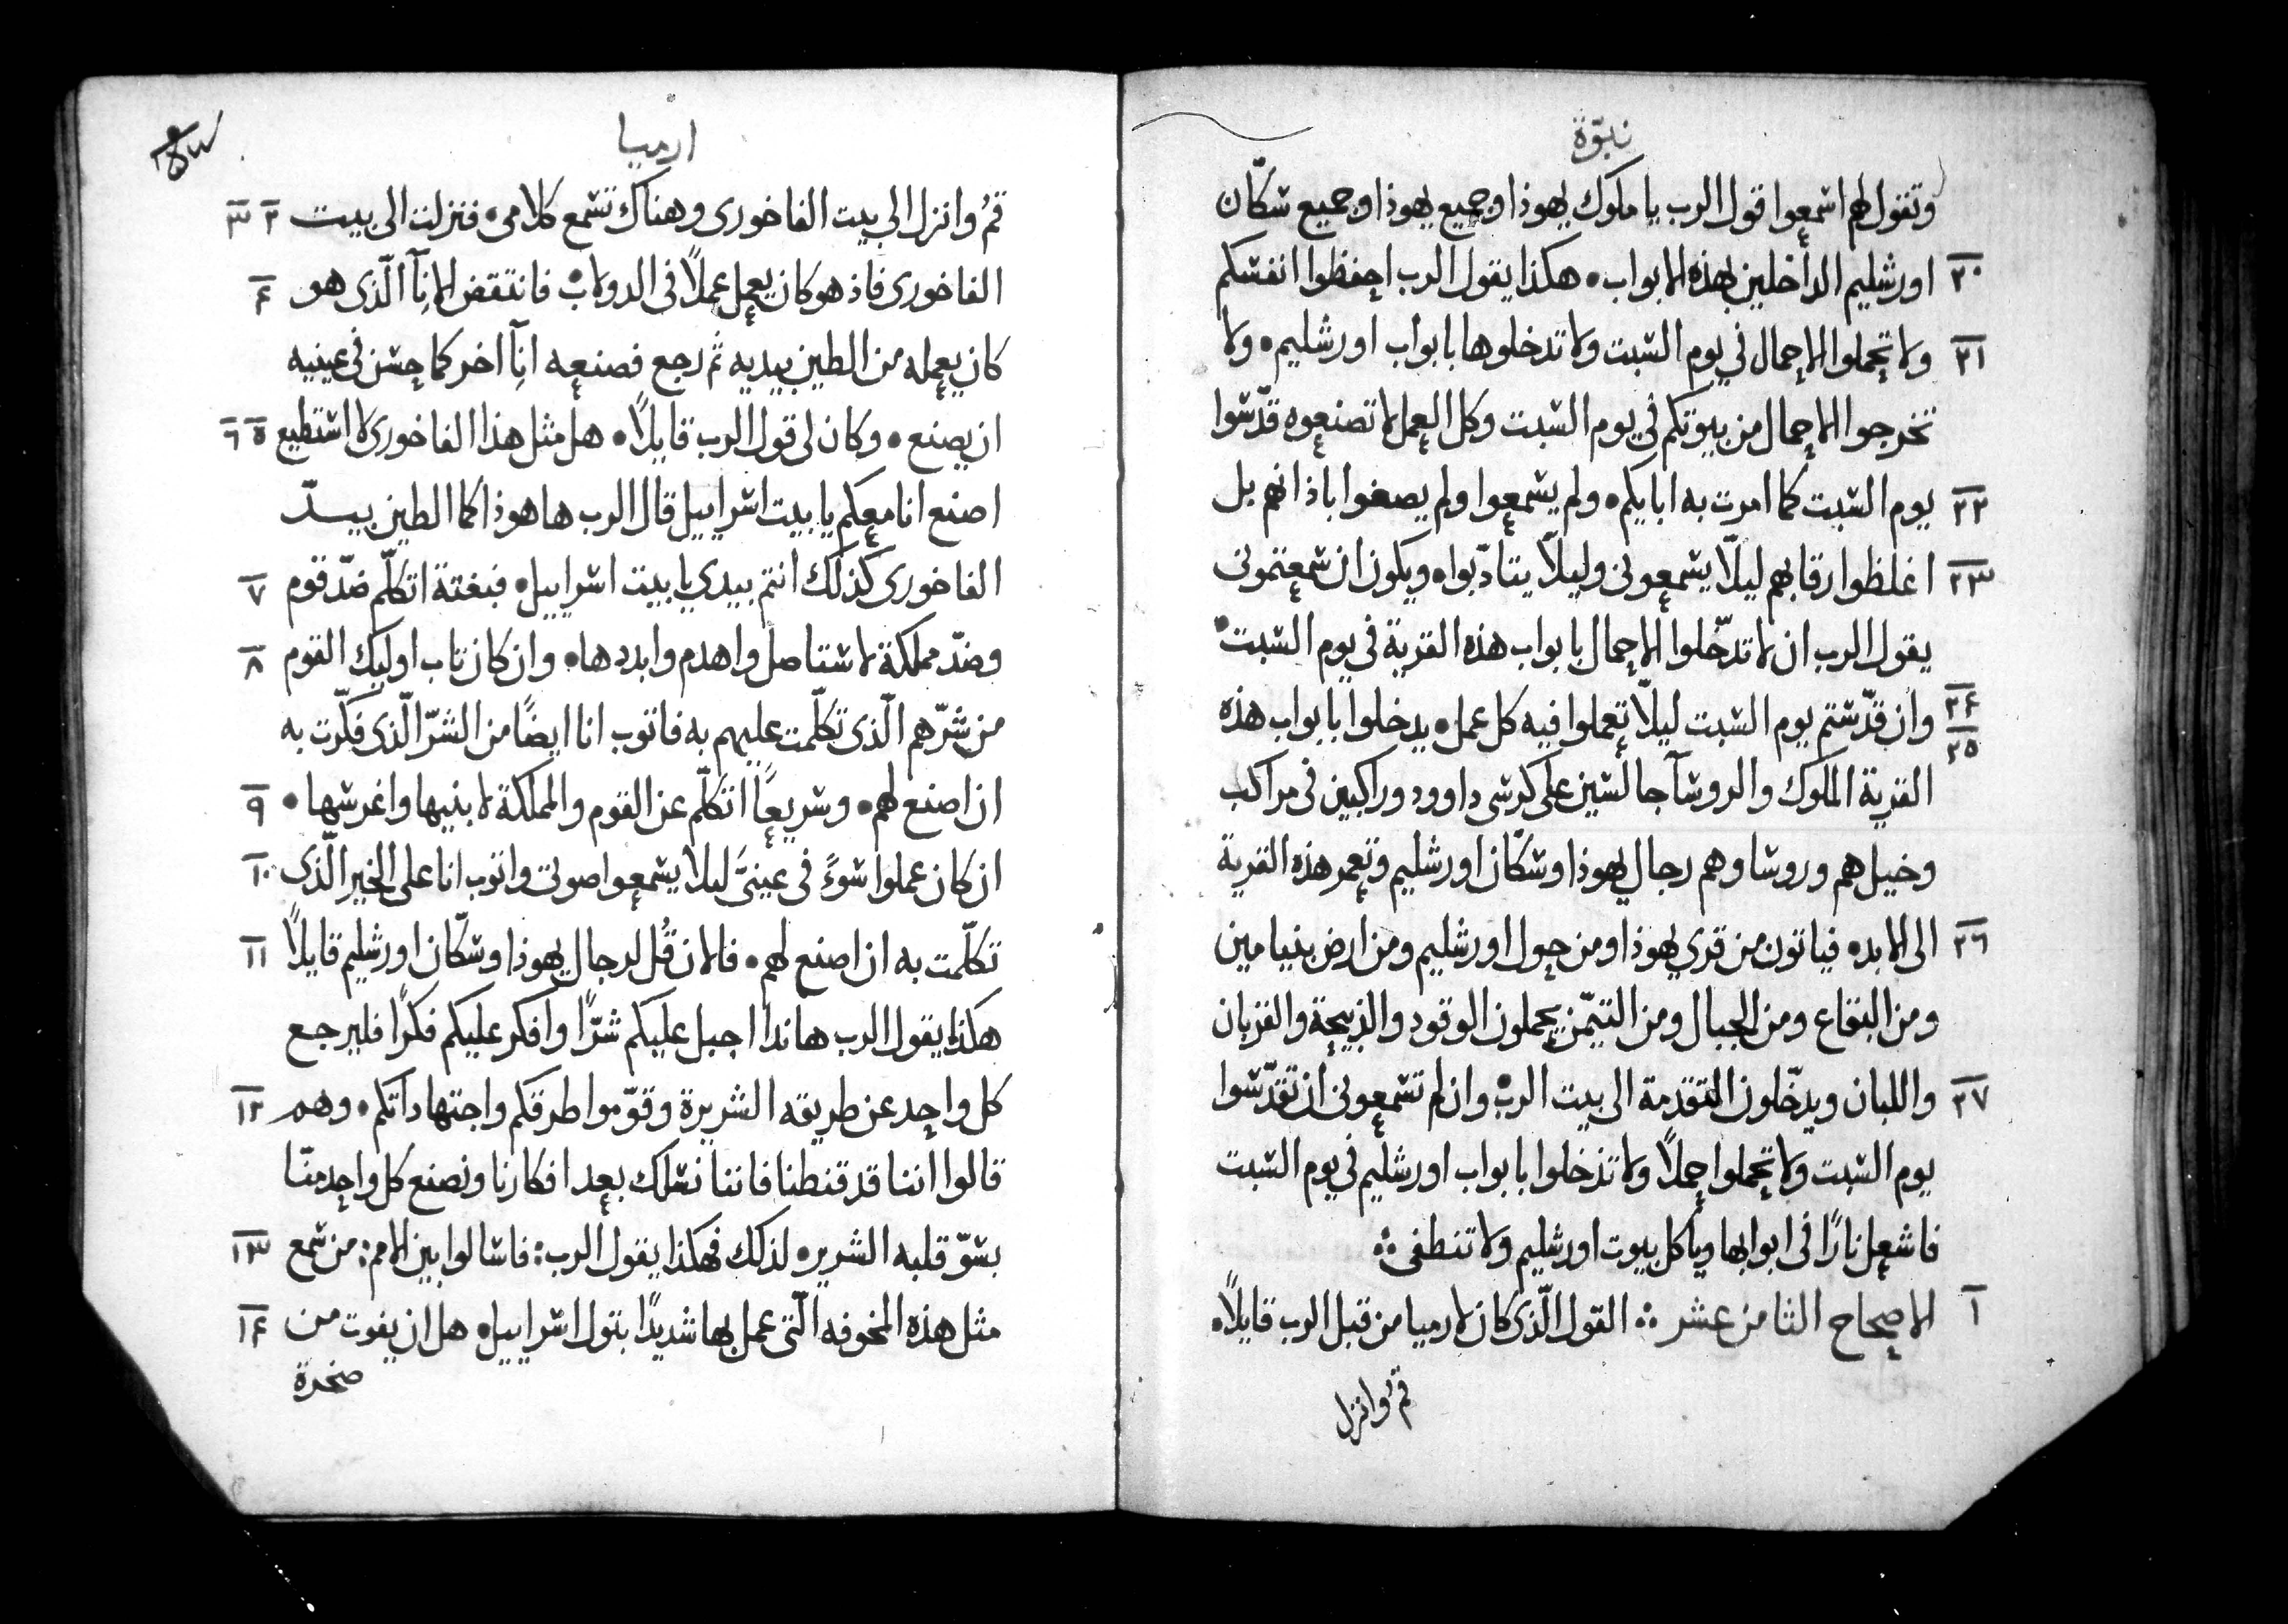 نبوّة
وتقول لهم اسمعوا قول الرب يا ملوك يهوذا وجميع يهوذا وجميع سكّان
٢٠ اورشليم الداخلين بهذه الابواب • هكذا يقول الرب احفظوا انفسكم
٢١ ولا تحملوا الاحمال في يوم السبت ولا تدخلوها بابواب اورشليم • ولا
تخرجوا الاحمال من بيوتكم في يوم السبت وكل العمل لا تصنعوه قدّسوا
٢٢ يوم السبت كما امرت به ابايكم • ولم يسمعوا ولم يصغوا باذانهم بل
٢٣ اغلظوا رقابهم ليلّا يسمعوني وليلّا يتادّبوا • ويكون ان سمعتموني
يقول الرب ان لا تدخّلوا الاحمال بابواب هذه القرية في يوم السبت •
٢٤ ٢٥ وان قدّستم يوم السبت ليلّا تعملوا فيه كل عمل • يدخلوا بابواب هذه
القرية الملوك والروسآ جالسين على كرسي داوود وراكبين في مراكب
وخيل هم وروسا وهم رجال يهوذا وسكّان اورشليم وتعمر هذه القرية
٢٦ الى الابد • فياتون من قري يهوذا ومن حول اورشليم ومن ارض بنيامين
ومن البقاع ومن الجبال ومن التيمّن يحملون الوقود والذبيحة والقربان
٢٧ واللبان ويدخّلون التقدمة الى بيت الرب • وان لم تسمعوني ان تقدّسوا
يوم السبت ولا تحملوا حملاً ولا تدخلوا بابواب اورشليم في يوم السبت
فاشعل نارًا في ابوابها وياكل بيوت اورشليم ولا تنطفى ؞
١ الاصحاح الثامن عشر ؞ القول الّذي كان لارميا من قبل الرب قايلاً •
قُم وانزل
ارميا
قُم وانزل الى بيت الفاخوري وهناك تسمع كلامي • فنزلت الى بيت ٢ ٣
الفاخوري فاذ هو كان يعمل عملاً في الدولاب • فانتقض الانآ الّذي هو ٤
كان يعمله من الطين بيديه ثم رجع فصنعه انآ اخر كما حسن في عينيه
ان يصنع • وكان لي قول الرب قايلاً • هل مثل هذا الفاخوري لا استطيع ٥ ٦
اصنع انا معكم يا بيت اسراييل قال الرب ها هوذا كما الطين بيد
الفاخوري كذلك انتم بيدي يا بيت اسراييل • فبغتة اتكلّم ضدّ قوم ٧
وضدّ مملكة لاستاصل واهدم وابددها • وان كان تاب اوليك القوم ٨
من شرّهم الّذي تكلّمت عليهم به فاتوب انا ايضًا من الشرّ الّذي فكّرت به
ان اصنع لهم • وسريعًا اتكلّم عن القوم والمملكة لابنيها واغرسها • ٩
ان كان عملوا سوءً في عينيَّ ليلا يسمعوا صوتي واتوب انا على الخير الّذي ١٠
تكلّمت به ان اصنع لهم • فالان قُل لرجال يهوذا وسكّان اورشليم قايلاً ١١
هكذا يقول الرب هانذا اجبل عليكم شرًّا وافكر عليكم فكرًا فليرجع
كل واحد عن طريقه الشريرة وقوّموا طرقكم واجتهاداتكم • وهم ١٢
قالوا اننا قد قنطنا فاننا نسلك بعد افكارنا ونصنع كل واحد منّا
بسوّ قلبه الشرير • لذلك فهكذا يقول الرب : فاسالوا بين الامم : من سمع ١٣
مثل هذه المخوفه الّتي عمل بها شديدًا بتول اسراييل • هل ان يفوت من ١٤
صخرة